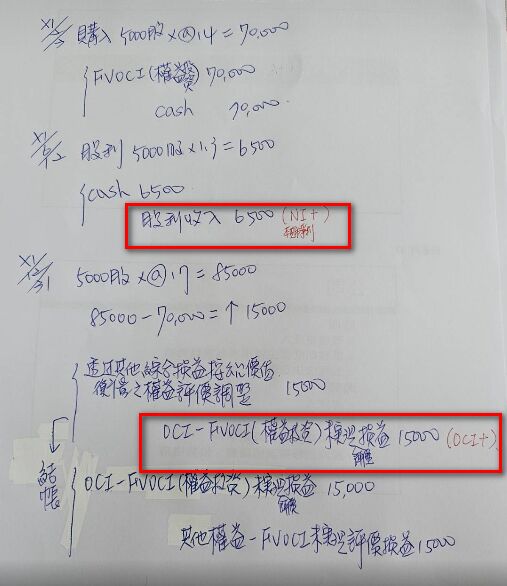 X1/5/5 購入 5000股 x@14 = 70,000
FVOCI(權益投資) 70,000
cash 70,000
X1/6/2 股利 5000股 x 1.3 = 6500
cash 6500
股利收入 6500 (NI+)
本期淨利
X1/12/31 5000股 x@17 = 85000
85000-70,000=↑15000
透過其他綜合損益按公允價值
衡量之權益評價調整 15000
OCI-FVOCI(權益投資)未實現損益 15000 (OCI+)
評價
結帳
OCI-FVOCI(權益投資)未實現損益 15,000
評價
其他權益-FVOCI未實現評價損益 15000